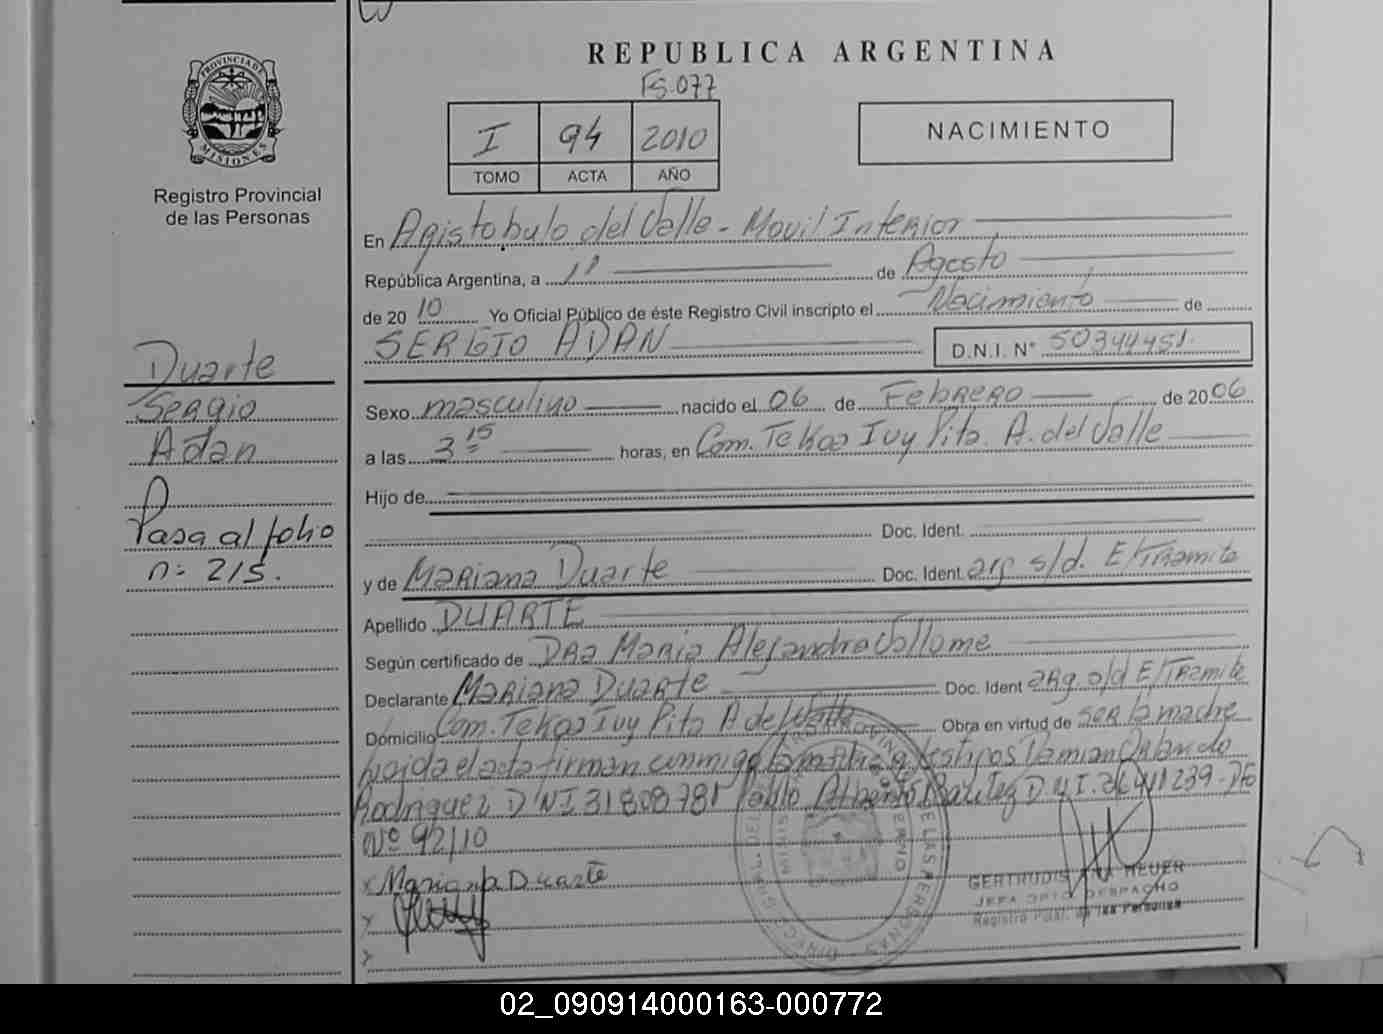 REPUBLICA ARGENTINA
Fs. 077
PROVINCIA DE MISIONES
Registro Provincial
de las Personas
I 94 2010
TOMO ACTA AÑO
NACIMIENTO
En Aristobulo del Valle - Movil Interior
República Argentina, a 1º de Agosto
de 2010 Yo Oficial Público de éste Registro Civil inscripto el Nacimiento de
SERGIO ADAN D.N.I. Nº 50344451
Sexo masculino nacido el 06 de Febrero de 2006
a las 3 15 horas, en Com. Tekoa Ivy Pita. A. del Valle
Hijo de
Doc. Ident.
y de Mariana Duarte Doc. Ident. arg s/d. E/Tramite
Apellido DUARTE
Según certificado de Dra Maria Alejandra
Declarante Mariana Duarte Doc. Ident arg s/d E/Tramite
Domicilio Com. Tekoa Ivy Pita A del Valle Obra en virtud de ser la madre
leida el acta firman conmigo la madre y testigos Damian Orlando
Rodriguez DNI 31808781 Pablo Alberto Benitez DNI. 36411239 -
Nº 92/10
x Mariana Duarte
x
x
GERTRUDIS ANA HEUER
JEFA DPTO DESPACHO
Registro Pcial. de las Personas
Duarte
Sergio
Adan
Pasa al folio
nº 215.
02_090914000163-000772